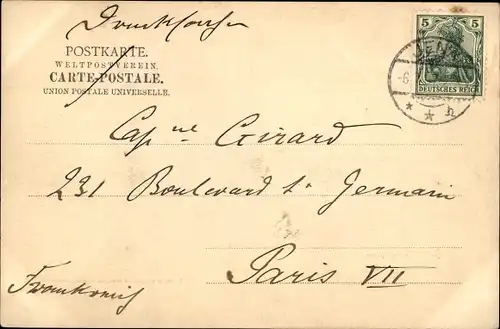 Drucksache
5 5
DEUTSCHES REICH
POSTKARTE.
WELTPOSTVEREIN.
CARTE-POSTALE.
UNION POSTALE UNIVERSELLE.
Cap ne Girard
231 Boulevard St Germain
Paris VII
Frankreich